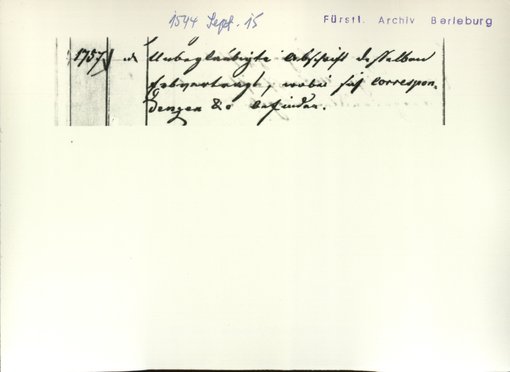 1544 Sept. 15
Fürstl. Archiv Berleburg
1757. do Unbeglaubigte Abschrift desselben
Erbvertrags, wobei sich correspon-
denzen &c befinden.